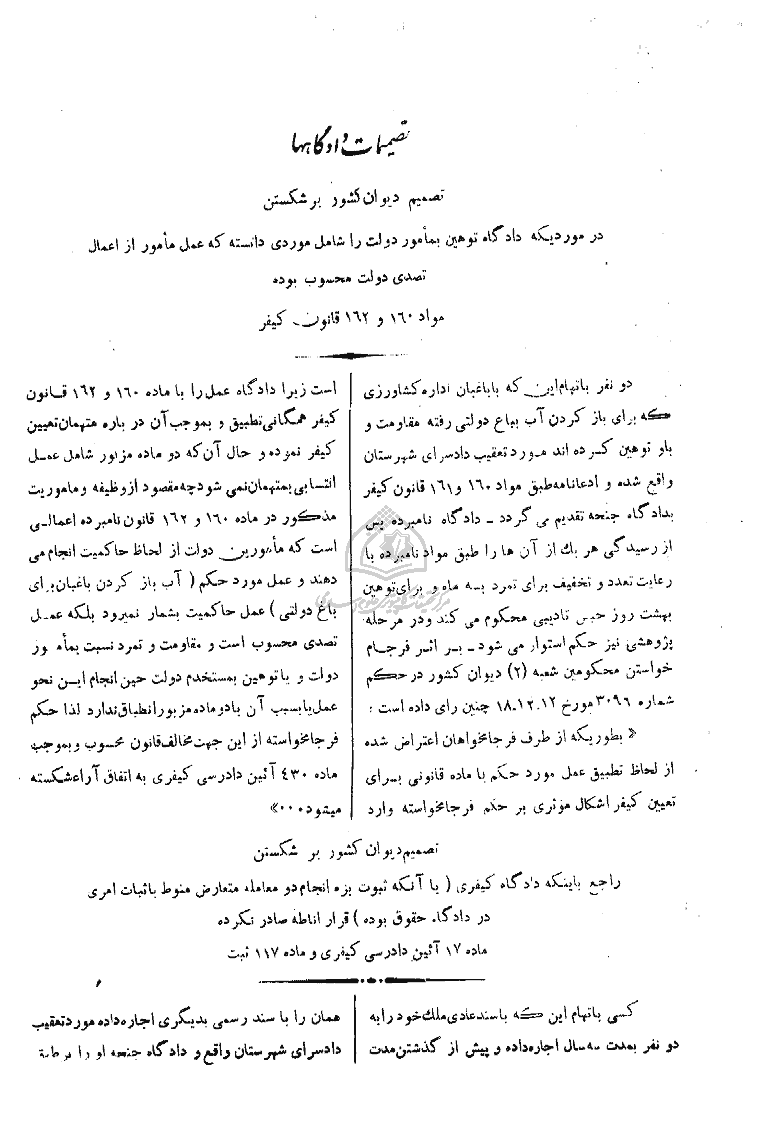 تصمیمات دادگاهها
تصمیم دیوان کشور بر شکستن
در موردیکه دادگاه توهین بمأمور دولت را شامل موردی دانسته که عمل مأمور از اعمال
تصدی دولت محسوب بوده
مواد ۱۶۰ و ۱۶۲ قانون کیفر
دو نفر باتهام این که باباغبان اداره کشاورزی
که برای باز کردن آب بباغ دولتی رفته مقاومت و
باو توهین کرده اند مورد تعقیب دادسرای شهرستان
واقع شده و ادعانامه طبق مواد ۱۶۰ و ۱۶۱ قانون کیفر
بدادگاه جنحه تقدیم می گردد - دادگاه نامبرده پس
از رسیدگی هر یك از آن ها را طبق مواد نامبرده با
رعایت تعدد و تخفیف برای تمرد بسه ماه و برای توهین
بهشت روز حبس تادیبی محکوم می کند ودر مرحله
پژوهشی نیز حکم استوار می شود - بر اثر فرجام
خواستن محکومین شعبه (۲) دیوان کشور در حکم
شماره ۳۰۹۶ مورخ ۱۸.۱۲.۱۲ چنین رای داده است :
« بطوریکه از طرف فرجامخواهان اعتراض شده
از لحاظ تطبیق عمل مورد حکم با ماده قانونی برای
تعیین کیفر اشکال موثری بر حکم فرجامخواسته وارد
است زیرا دادگاه عمل را با ماده ۱۶۰ و ۱۶۲ قانون
کیفر همگانی تطبیق و بموجب آن در باره متهمان تعیین
کیفر نموده و حال آن که دو ماده مزبور شامل عمل
انتسابی بمتهمان نمی شود چه مقصود از وظیفه و ماموریت
مذکور در ماده ۱۶۰ و ۱۶۲ قانون نامبرده اعمالی
است که مأمورین دولت از لحاظ حاکمیت انجام می
دهند و عمل مورد حکم ( آب باز کردن باغبان برای
باغ دولتی ) عمل حاکمیت بشمار نمیرود بلکه عمل
تصدی محسوب است و مقاومت و تمرد نسبت بمأمور
دولت و یا توهین بمستخدم دولت حین انجام این نحو
عمل یا بسبب آن بادو ماده مزبور انطباق ندارد لذا حکم
فرجامخواسته از این جهت مخالف قانون محسوب و بموجب
ماده ۴۳۰ آئین دادرسی کیفری به اتفاق آراء شکسته
میشود۰۰۰»
تصمیم دیوان کشور بر شکستن
راجع باینکه دادگاه کیفری ( با آنکه ثبوت بزه انجام دو معامله متعارض منوط باثبات امری
در دادگاه حقوق بوده ) قرار اناطه صادر نکرده
ماده ۱۷ آئین دادرسی کیفری و ماده ۱۱۷ ثبت
کسی باتهام این که باسند عادی ملك خود را به
دو نفر بمدت سه سال اجاره داده و پیش از گذشتن مدت
همان را با سند رسمی بدیگری اجاره داده مورد تعقیب
دادسرای شهرستان واقع و دادگاه جنحه او را